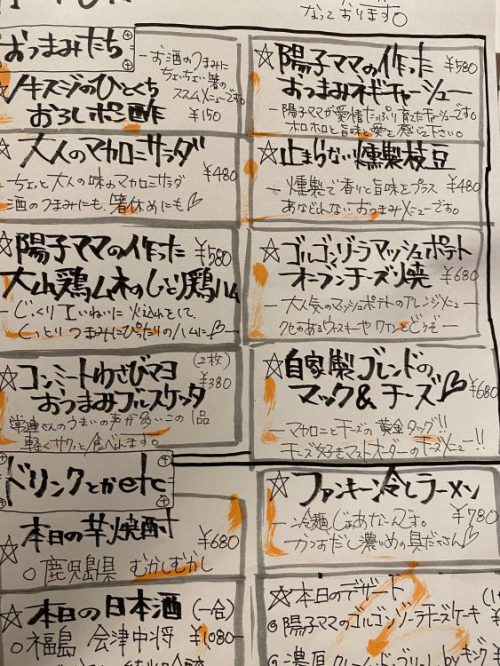 なっております。
おつまみたち
－お酒のつまみに
ちょいちょい箸の
ススムメニューです。
牛スジのひとくち
おろしポン酢
¥150
☆陽子ママの作った
おつまみネギチャーシュー
¥580
－陽子ママが愛情たっぷり育ったチャーシューです。
ホロホロと旨味と愛を感じて下さい。
☆大人のマカロニサラダ
¥480
－ちょっと大人の味のマカロニサラダ
酒のつまみにも、箸休めにも♡
☆止まらない燻製枝豆
¥480
－燻製で香りと旨味をプラス
あなどれないおつまみメニューです。
☆陽子ママの作った
¥580
大山鶏ムネのしっとり鶏ハム
－じっくりていねいに火入れをして、
しっとりつまみにぴったりのハムに♡－
☆ゴルゴンゾーラマッシュポテト
オーブンチーズ焼
¥680
－大人気のマッシュポテトのアレンジメニュー
クセのあるウイスキーやワインとどうぞ－
☆コンミートわさびマヨ
(2枚)
おつまみブルスケッタ
¥380
常連さんのうまいの声が多いこの1品
軽くサクッと食べれます。
☆自家製ブレンドの
マック&チーズ♡
¥680
－マカロニとチーズの黄金タッグ!!
チーズ好きマストオーダーのチーズメニュー!!
ドリンクとかetc
☆本日の芋焼酎
¥680
○鹿児島県 むかしむかし
☆ファンキー冷しラーメン
¥780
－冷麺じゃあないんです。
かつおだし濃いめの具だくさん♡
☆本日の日本酒(一合)
○福島 会津中将 ¥1080－
☆本日のデザート
◎陽子ママのゴルゴンゾーラチーズケーキ